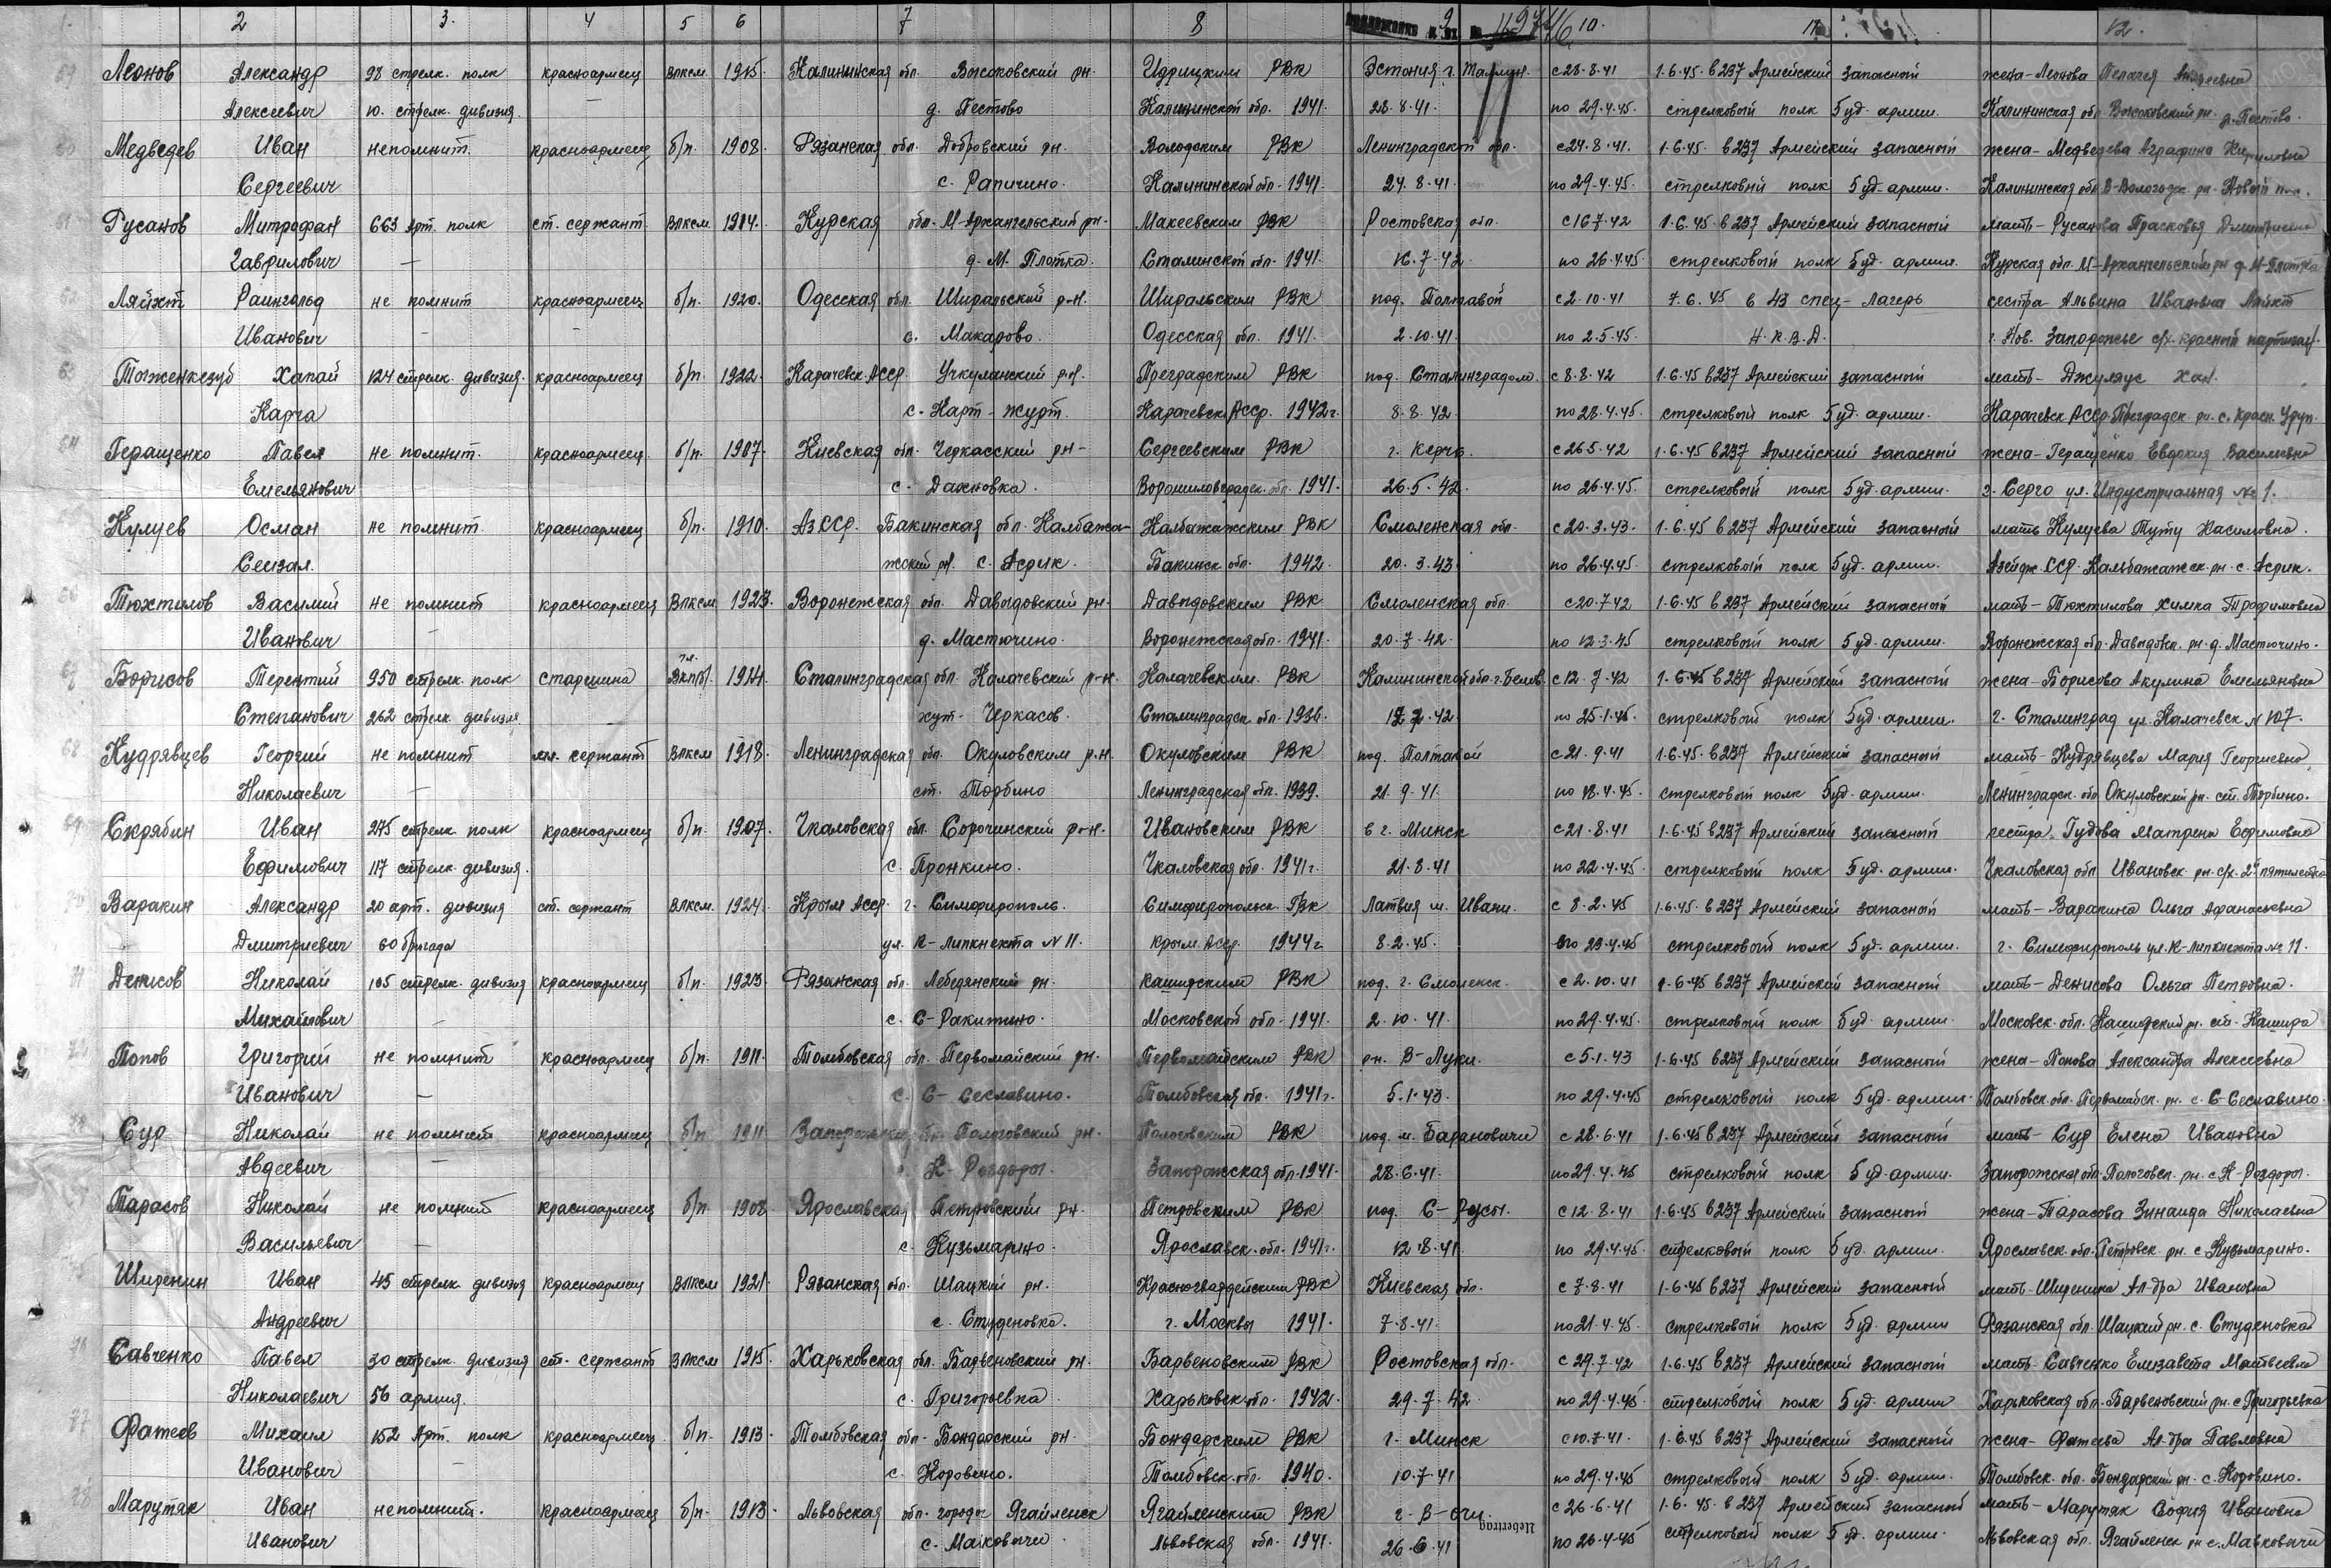 2 3. 4 5 6 7 8 9 10. 11. 12.
Леонов Александр 98 стрелк. полк красноармеец ВЛКСМ 1915. Калининская обл. Высоковский рн. Идрицким РВК Эстония г. Таллин. с 28.8.41 1.6.45. в 237 Армейский запасный жена-Леонова Пелагея Андреевна
Алексеевич 10. стрелк. дивизия. — д. Пестово Калининской обл. 1941. 28.8.41. по 29.4.45. стрелковый полк 5 уд. армии. Калининская обл. Высоковский рн. д. Пестово.
Медведев Иван непомнит. красноармеец б/п. 1908. Рязанская обл. Добровский рн. Володским РВК Ленинградской обл. с 24.8.41. 1.6.45. в 237 Армейский запасный жена-Медведева Аграфина Кириловна
Сергеевич с. Рапичино. Калининской обл. 1941. 24.8.41. по 29.4.45. стрелковый полк 5 уд. армии. Калининская обл.
Русанов Митрофан 663 арт. полк ст. сержант. ВЛКСМ 1914. Курская обл. М-Архангельский рн. Макеевским РВК Ростовская обл. с 16.7.42 1.6.45. в 237 Армейский запасный мать-Русанова Прасковья Дмитриевна
Гаврилович — д. М. Плотка. Сталинской обл. 1941. 16.7.42. по 26.4.45. стрелковый полк 5 уд. армии. Курская обл. М-Архангельский рн д. М-Плотка
Ляйхт Раингольд не помнит красноармеец б/п. 1920. Одесская обл. Ширяльский р-н. Ширяльским РВК под. Полтавой с 2.10.41 7.6.45 в 43 спец-лагерь сестра-Альвина Ивановна Ляйхт
Иванович — — с. Макарово. Одесская обл. 1941. 2.10.41. по 2.5.45. Н.К.В.Д. г. Нов. Запорожье с/х. красный партизан.
Тоженкезуб Хапай 124 стрелк. дивизия. красноармеец б/п. 1922. Карачевск. АССР Учкуланский р.н. Преградским РВК под. Сталинградом. с 8.8.42 1.6.45 в 237 Армейский запасный мать-Джуляус Хап.
Карча с. Карт-журт. Карачевск. АССР. 1942 г. 8.8.42. по 28.4.45. стрелковый полк 5 уд. армии. Карачевск АССР Преградск. рн. с. Красн. Уруп.
Геращенко Павел не помнит. красноармеец. б/п. 1907. Киевская обл. Черкасский рн- Сергеевским РВК г. Керчь. с 26.5.42 1.6.45 в 237 Армейский запасный жена-Геращенко Евдокия Васильевна
Емельянович с. Дахновка. Ворошиловградск. обл. 1941. 26.5.42. по 26.4.45. стрелковый полк 5 уд. армии. г. Серго ул. Индустриальная № 1.
Кулуев Осман не помнит. красноармеец б/п. 1910. АзССР. Бакинская обл. Калбажа- Калбажажским РВК Смоленская обл. с 20.3.43. 1.6.45 в 237 Армейский запасный мать Кулуева Туту Касимовна.
Сеизал. жский рн. с. Асрик. Бакинск обл. 1942. 20.3.43. по 26.4.45. стрелковый полк 5 уд. армии. Азейдж. ССР. Кальбажажск. рн. с. Асрик.
Тюхтилов Василий не помнит красноармеец ВЛКСМ 1923. Воронежская обл. Давыдовский рн. Давыдовским РВК Смоленская обл. с 20.7.42 1.6.45 в 237 Армейский запасный мать-Тюхтилова Химка Трафимовна
Иванович — д. Мастючино. Воронежская обл. 1941. 20.7.42. по 12.3.45 стрелковый полк 5 уд. армии. Воронежская обл. Давыдовск. рн. д. Мастючино.
Борисов Терентий 950 стрелк. полк старшина ВКП(б). 1914. Сталинградская обл. Калачевский р-н. Калачевским. РВК Калининской обл. г. Белов. с 12.7.42 1.6.45 в 237 Армейский запасный жена-Борисова Акулина Емельяновна
Степанович 262 стрелк. дивизия — хут. Черкасов. Сталинградск. обл. 1936. 12.7.42. по 25.1.45. стрелковый полк 5 уд. армии. г. Сталинград ул. Калачевск N 107.
Кудрявцев Георгий не помнит мл. сержант ВЛКСМ 1918. Ленинградская обл. Окуловским р.н. Окуловским РВК под. Полтавой с 21.9.41 1.6.45. в 237 Армейский запасный мать-Кудрявцева Мария Георгиевна.
Николаевич — ст. Торбино Ленинградская обл. 1939. 21.9.41. по 18.4.45. стрелковый полк 5 уд. армии. Ленинградск. обл. Окуловский рн. ст. Торбино.
Скрябин Иван 275 стрелк. полк красноармеец б/п. 1907. Чкаловская обл. Сорочинский р-н. Ивановским РВК в г. Минск с 21.8.41 1.6.45 в 237 Армейский запасный сестра Гудова Матрена Ефимовна
Ефимович 117 стрелк. дивизия. с. Пронкино. Чкаловская обл. 1941 г. 21.8.41 по 22.4.45. стрелковый полк 5 уд. армии. Чкаловская обл. Ивановск рн. с/х. 2я пятилетка
Варакин Александр 20 арт. дивизия ст. сержант ВЛКСМ. 1924. Крым АССР г. Симферополь. Симферопольск. ГВК Латвия м. Ивани. с 8.2.45 1.6.45. в 237 Армейский запасный мать-Варакина Ольга Афанасьевна
Дмитриевич 60 бригада ул. К-Липкнехта N 11. Крым. АССР. 1944 г 8.2.45. по 29.4.45 стрелковый полк 5 уд. армии. г. Симферополь ул. К-Липкнехта № 11.
Денисов Николай 105 стрелк. дивизия красноармеец б/п. 1923. Рязанская обл. Лебедянский рн. Каширским РВК под. г. Смоленск. с 2.10.41 1.6.45 в 237 Армейский запасный мать-Денисова Ольга Петровна.
Михайлович — с. С-Ракитино. Московской обл. 1941. 2.10.41. по 29.4.45. стрелковый полк 5 уд. армии. Московск. обл. Каширский рн. ст. Кашира
Попов Григорий не помнит красноармеец б/п. 1911. Томбовская обл. Первомайский рн. Первомайским РВК рн. В-Луки. с 5.1.43 1.6.45 в 237 Армейский запасный жена-Попова Александра Алексеевна
Иванович — с. С-Сеславино. Томбовская обл. 1941 г. 5.1.43. по 29.4.45 стрелковый полк 5 уд. армии. Томбовск. обл. Первомайск. рн. с. С-Сеславино.
Сур Николай не помнит красноармеец б/п 1911 Запорожская Пологовский рн. Пологовским РВК под. м. Барановичи с 28.6.41 1.6.45 в 237 Армейский запасный мать-Сур Елена Ивановна
Авдеевич — с. К-Роздоры. Запорожская обл. 1941. 28.6.41. по 29.4.45 стрелковый полк 5 уд. армии. Запорожская обл. Пологовск. рн. с. К-Роздоры.
Тарасов Николай не помнит красноармеец б/п. 1908 Ярославская Петровский рн. Петровским РВК под. С-Русы. с 12.8.41 1.6.45 в 237 Армейский запасный жена-Тарасова Зинаида Николаевна
Васильевич — с. Кузьмарино. Ярославск. обл. 1941 г. 12.8.41. по 29.4.45. стрелковый полк 5 уд. армии. Ярославск. обл. Петровск. рн. с Кузьмарино.
Ширенин Иван 45 стрелк. дивизия красноармеец ВЛКСМ 1921. Рязанская обл. Шацкий рн. Красногвардейским РВК Киевская обл. с 7.8.41 1.6.45 в 237 Армейский запасный мать-Ширенина Ал-дра Ивановна
Андреевич с. Студеновка. г. Москвы 1941. 7.8.41. по 21.4.45. стрелковый полк 5 уд. армии Рязанская обл. Шацкий рн. с. Студеновка
Савченко Павел 30 стрелк. дивизия ст. сержант ВЛКСМ 1915. Харьковская обл. Барвеновский рн. Барвеновским РВК Ростовская обл. с 29.7.42 1.6.45 в 237 Армейский запасный мать-Савченко Елизавета Матвеевна
Николаевич 56 армия. с. Григорьевка. Харьковск. обл. 1942. 29.7.42 по 29.4.45 стрелковый полк 5 уд. армии Харьковская обл. Барвеновский рн. с Григорьевка
Фатеев Михаил 152 Арт. полк красноармеец. б/п. 1913. Томбовская обл. Бондарский рн. Бондарским РВК г. Минск с 10.7.41. 1.6.45 в 237 Армейский запасный жена-Фатеева Ал-дра Павловна
Иванович — с. Коровино. Томбовск. обл. 1940. 10.7.41 по 29.4.45 стрелковый полк 5 уд. армии. Томбовск. обл. Бондарский рн. с. Коровино.
Марутяк Иван непомнит. красноармеец б/п. 1913. Львовская обл. городог Ягайленск Ягайленский РВК с 26.6.41 1.6.45. в 237 Армейский запасной мать-Марутяк София Ивановна
Uebertrag
Иванович с. Маковичи Львовская обл. 1941. 26.6.41 по 26.4.45 стрелковый полк 5 уд. армии. Львовская обл. Ягайленск рн с. Мавковичи